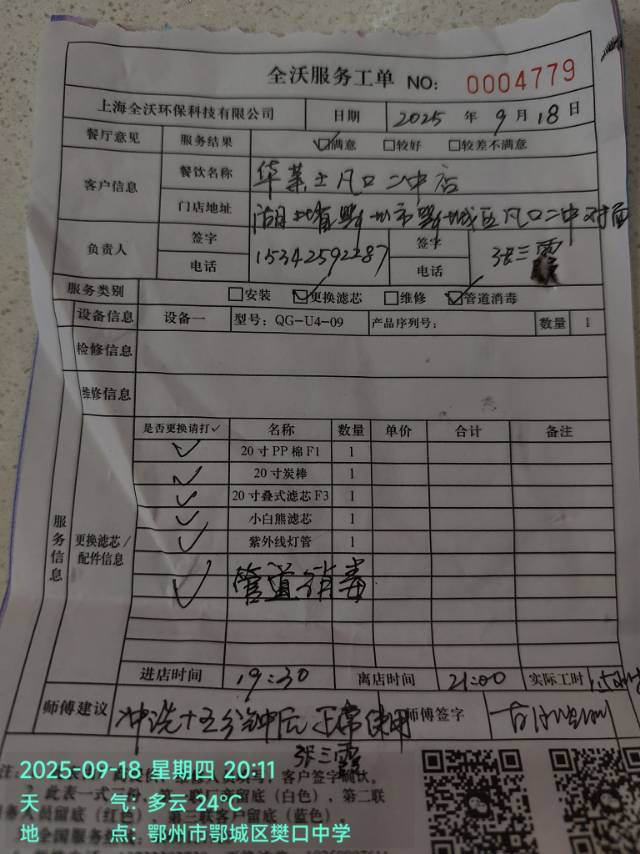 全沃服务工单 NO: 0004779
上海全沃环保科技有限公司 日期 2025 年 9 月 18 日
餐厅意见 服务结果 ☑满意 □较好 □较差不满意
客户信息 餐饮名称 华莱士凡口二中店
门店地址 湖北省鄂州市鄂城区凡口二中对面
负责人 签字 签字 张三霞
电话 15342592287 电话
服务类别 □安装 ☑更换滤芯 □维修 ☑管道消毒
设备信息 设备一 型号: QG-U4-09 产品序列号: 数量 1
检修信息
维修信息
服务信息 更换滤芯/配件信息
是否更换请打✓ 名称 数量 单价 合计 备注
✓ 20寸PP棉F1 1
✓ 20寸炭棒 1
✓ 20寸叠式滤芯F3 1
✓ 小白熊滤芯 1
✓ 紫外线灯管 1
✓ 管道消毒
进店时间 19:30 离店时间 21:00 实际工时
师傅建议 冲洗十五分钟后正常使用 师傅签字
张三霞
2025-09-18 星期四 20:11
天 气: 多云 24℃
地 点: 鄂州市鄂城区樊口中学